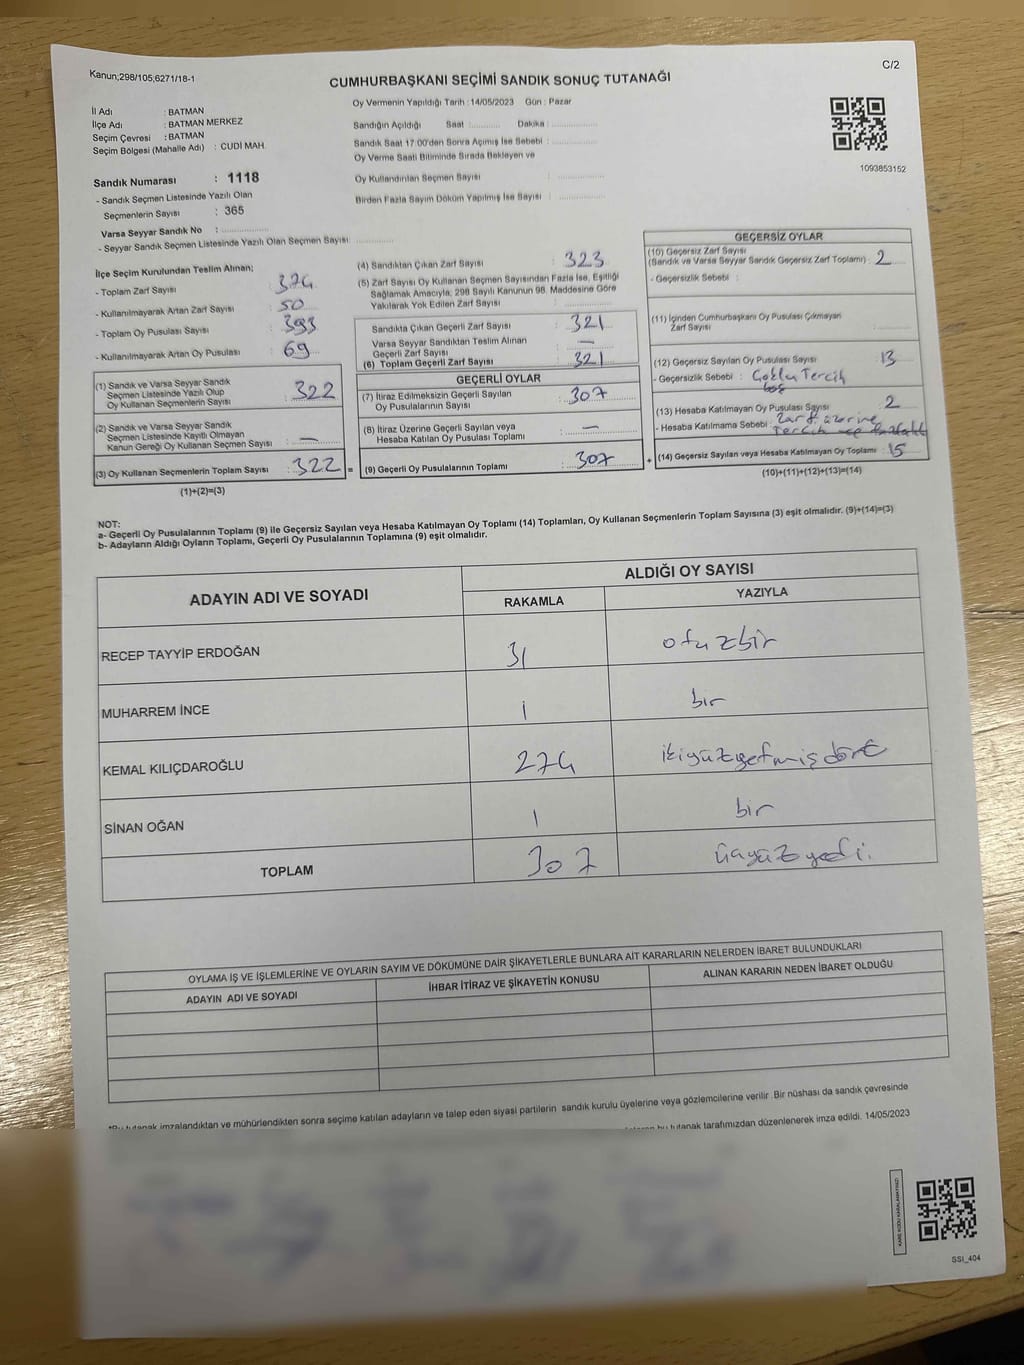 Kanun;298/105;6271/18-1
C/2
CUMHURBAŞKANI SEÇİMİ SANDIK SONUÇ TUTANAĞI
İl Adı : BATMAN
İlçe Adı : BATMAN MERKEZ
Seçim Çevresi : BATMAN
Seçim Bölgesi (Mahalle Adı) : CUDİ MAH.
Sandık Numarası : 1118
- Sandık Seçmen Listesinde Yazılı Olan
Seçmenlerin Sayısı : 365
Varsa Seyyar Sandık No :
- Seyyar Sandık Seçmen Listesinde Yazılı Olan Seçmen Sayısı:
Oy Vermenin Yapıldığı Tarih :14/05/2023 Gün : Pazar
Sandığın Açıldığı Saat Dakika :
Sandık Saat 17:00'den Sonra Açımış İse Sebebi :
Oy Verme Saati Bitiminde Sırada Bekleyen ve
Oy Kullandırılan Seçmen Sayısı :
Birden Fazla Sayım Döküm Yapılmış İse Sayısı :
1093853152
İlçe Seçim Kurulundan Teslim Alınan;
- Toplam Zarf Sayısı : 374
- Kullanılmayarak Artan Zarf Sayısı : 50
- Toplam Oy Pusulası Sayısı : 393
- Kullanılmayarak Artan Oy Pusulası : 69
(1) Sandık ve Varsa Seyyar Sandık
Seçmen Listesinde Yazılı Olup
Oy Kullanan Seçmenlerin Sayısı : 322
(2) Sandık ve Varsa Seyyar Sandık
Seçmen Listesinde Kayıtlı Olmayan
Kanun Gereği Oy Kullanan Seçmen Sayısı : —
(3) Oy Kullanan Seçmenlerin Toplam Sayısı : 322 =
(1)+(2)=(3)
(4) Sandıktan Çıkan Zarf Sayısı : 323
(5) Zarf Sayısı Oy Kullanan Seçmen Sayısından Fazla İse, Eşitliği
Sağlamak Amacıyla, 298 Sayılı Kanunun 98. Maddesine Göre
Yakılarak Yok Edilen Zarf Sayısı :
Sandıkta Çıkan Geçerli Zarf Sayısı : 321
Varsa Seyyar Sandıktan Teslim Alınan
Geçerli Zarf Sayısı : —
(6) Toplam Geçerli Zarf Sayısı : 321
GEÇERLİ OYLAR
(7) İtiraz Edilmeksizin Geçerli Sayılan
Oy Pusulalarının Sayısı : 307
(8) İtiraz Üzerine Geçerli Sayılan veya
Hesaba Katılan Oy Pusulası Toplamı : —
(9) Geçerli Oy Pusulalarının Toplamı : 307 +
GEÇERSİZ OYLAR
(10) Geçersiz Zarf Sayısı
(Sandık ve Varsa Seyyar Sandık Geçersiz Zarf Toplamı) : 2
- Geçersizlik Sebebi :
(11) İçinden Cumhurbaşkanı Oy Pusulası Çıkmayan
Zarf Sayısı :
(12) Geçersiz Sayılan Oy Pusulası Sayısı : 13
- Geçersizlik Sebebi : Çoklu Tercih
boş
(13) Hesaba Katılmayan Oy Pusulası Sayısı : 2
- Hesaba Katılmama Sebebi : zarf üzerine
(14) Geçersiz Sayılan veya Hesaba Katılmayan Oy Toplamı : 15
(10)+(11)+(12)+(13)=(14)
NOT:
a- Geçerli Oy Pusulalarının Toplamı (9) ile Geçersiz Sayılan veya Hesaba Katılmayan Oy Toplamı (14) Toplamları, Oy Kullanan Seçmenlerin Toplam Sayısına (3) eşit olmalıdır. (9)+(14)=(3)
b- Adayların Aldığı Oyların Toplamı, Geçerli Oy Pusulalarının Toplamına (9) eşit olmalıdır.
ADAYIN ADI VE SOYADI
ALDIĞI OY SAYISI
RAKAMLA YAZIYLA
RECEP TAYYİP ERDOĞAN 31 otuzbir
MUHARREM İNCE 1 bir
KEMAL KILIÇDAROĞLU 274 ikiyüzyetmişdört
SİNAN OĞAN 1 bir
TOPLAM 307 üçyüzyedi.
OYLAMA İŞ VE İŞLEMLERİNE VE OYLARIN SAYIM VE DÖKÜMÜNE DAİR ŞİKAYETLERLE BUNLARA AİT KARARLARIN NELERDEN İBARET BULUNDUKLARI
ADAYIN ADI VE SOYADI İHBAR İTİRAZ VE ŞİKAYETİN KONUSU ALINAN KARARIN NEDEN İBARET OLDUĞU
*Bu tutanak imzalandıktan ve mühürlendikten sonra seçime katılan adayların ve talep eden siyasi partilerin sandık kurulu üyelerine veya gözlemcilerine verilir. Bir nüshası da sandık çevresinde
bu tutanak tarafımızdan düzenlenerek imza edildi. 14/05/2023
KARE KODU KARALAMAYINIZ!
SSI_404